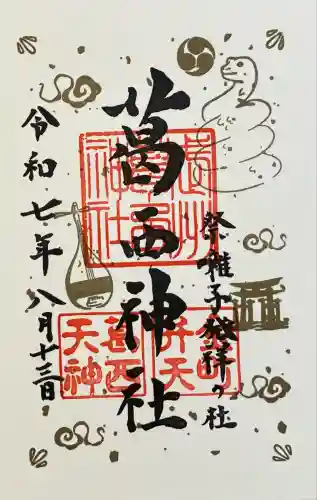 祭囃子発祥の社
葛西神社
令和七年八月十三日
金町
弁天
葛西
天神